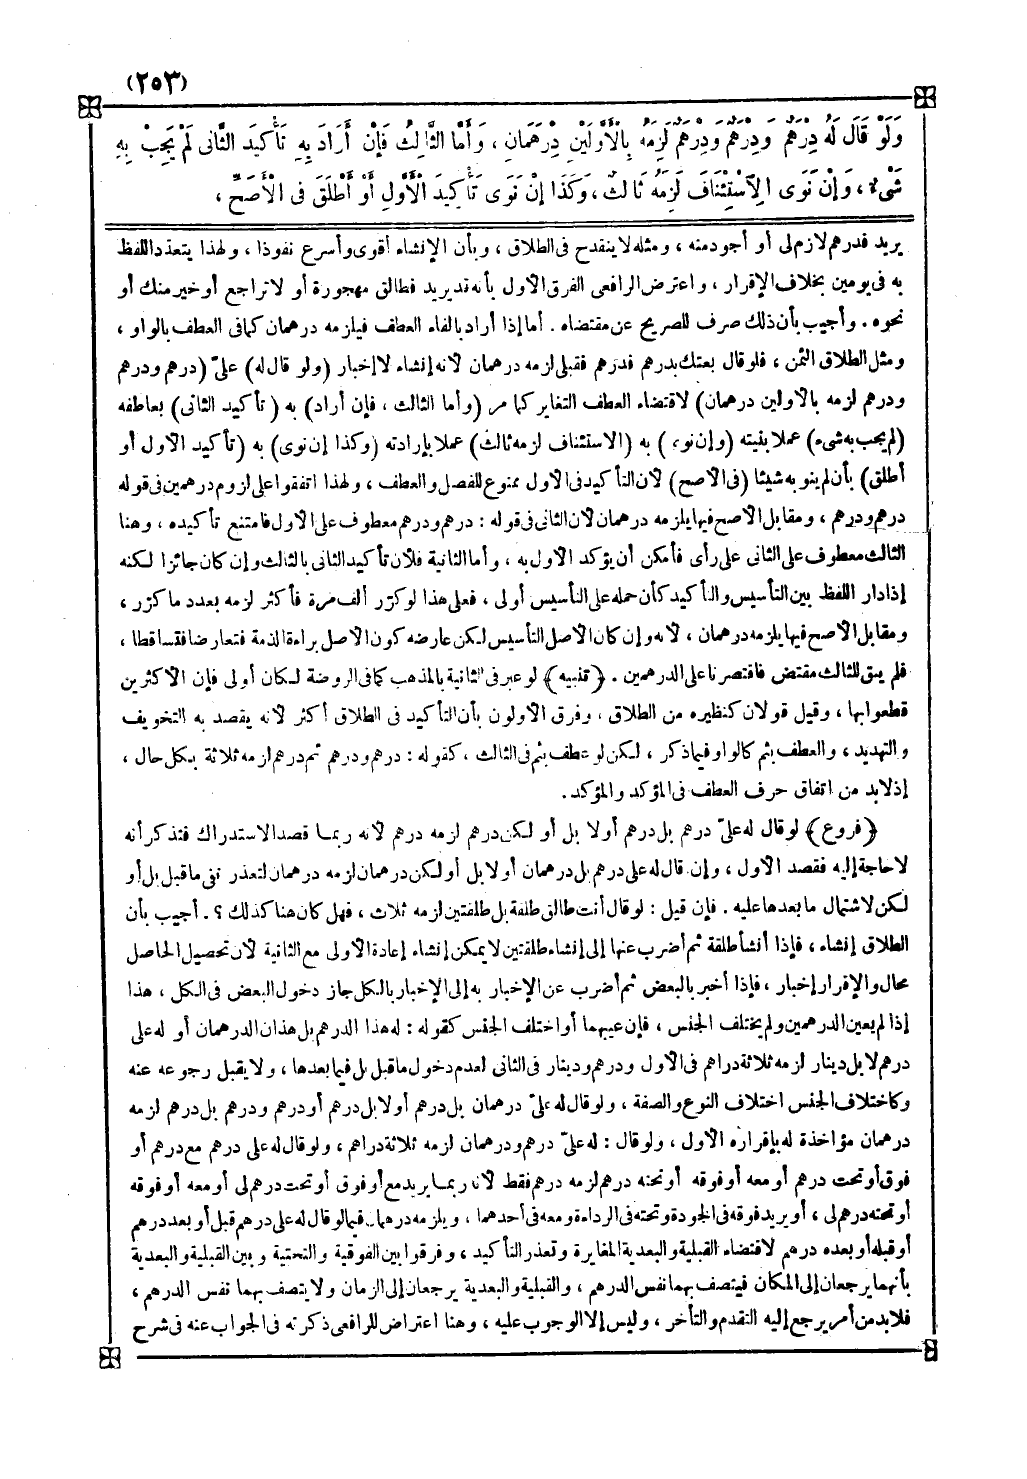 (٢٥٣)
وَلَوْ قَالَ لَهُ دِرْهَمٌ وَدِرْهَمٌ وَدِرْهَمٌ لَزِمَهُ بِالْأَوَّلَيْنِ دِرْهَمَانِ ، وَأَمَّا الثَّالِثُ فَإِنْ أَرَادَ بِهِ تَأْكِيدَ الثَّانِى لَمْ يَجِبْ بِهِ
شَىْءٌ ، وَإِنْ نَوَى الِاسْتِئْنَافَ لَزِمَهُ ثَالِثٌ ، وَكَذَا إِنْ نَوَى تَأْكِيدَ الْأَوَّلِ أَوْ أَطْلَقَ فِى الْأَصَحِّ ،
يريد فدرهم لازم لى أو أجود منه ، ومثله لا ينقدح فى الطلاق ، وبأن الإنشاء أقوى وأسرع نفوذا ، ولهذا يتعدد اللفظ
به فى يومين بخلاف الإقرار ، واعترض الرافعى الفرق الأول بأنه قد يريد فطالق مهجورة أو لا تراجع أو خير منك أو
نحوه . وأجيب بأن ذلك صرف للصريح عن مقتضاه . أما إذا أراد بالفاء العطف فيلزمه درهمان كما فى العطف بالواو ،
ومثل الطلاق الثمن ، فلو قال بعتك بدرهم فدرهم فقبل لزمه درهمان لأنه إنشاء لا إخبار (ولو قال له) علىّ (درهم ودرهم
ودرهم لزمه بالأولين درهمان) لاقتضاء العطف التغاير كما مر (وأما الثالث ، فإن أراد) به (تأكيد الثانى) بعاطفه
(لم يجب به شىء) عملا بنيته (وإن نوى) به (الاستئناف لزمه ثالث) عملا بإرادته (وكذا إن نوى) به (تأكيد الأول أو
أطلق) بأن لم ينو به شيئا (فى الأصح) لأن التأكيد فى الأول ممنوع للفصل والعطف ، ولهذا اتفقوا على لزوم درهمين فى قوله
درهم ودرهم ، ومقابل الأصح فيها يلزمه درهمان لأن الثانى فى قوله : درهم ودرهم معطوف على الأول فامتنع تأكيده ، وهنا
الثالث معطوف على الثانى على رأى فأمكن أن يؤكد الأول به ، وأما الثانية فلأن تأكيد الثانى بالثالث وإن كان جائزا لكنه
إذا دار اللفظ بين التأسيس والتأكيد كأن حمله على التأسيس أولى ، فعلى هذا لو كرّر ألف مرة فأكثر لزمه بعدد ما كرّر ،
ومقابل الأصح فيها يلزمه درهمان ، لأنه وإن كان الأصل التأسيس لكن عارضه كون الأصل براءة الذمة فتعارضا فتساقطا ،
فلم يبق للثالث مقتض فاقتصرنا على الدرهمين . ﴿تنبيه﴾ لو عبر فى الثانية بالمذهب كما فى الروضة لكان أولى فإن الأكثرين
قطعوا بها ، وقيل قولان كنظيره من الطلاق ، وفرق الأولون بأن التأكيد فى الطلاق أكثر لأنه يقصد به التخويف
والتهديد ، والعطف بثم كالواو فيما ذكر ، لكن لو عطف بثم فى الثالث ، كقوله : درهم ودرهم ثم درهم لزمه ثلاثة بكل حال ،
إذ لا بد من اتفاق حرف العطف فى المؤكد والمؤكد .
﴿فروع﴾ لو قال له علىّ درهم بل درهم أو لا بل أو لكن درهم لزمه درهم لأنه ربما قصد الاستدراك فتذكر أنه
لا حاجة إليه فقصد الأول ، وإن قال له على درهم بل درهمان أو لا بل أو لكن درهمان لزمه درهمان لتعذر نفى ما قبل بل أو
لكن لاشتمال ما بعدها عليه . فإن قيل : لو قال أنت طالق طلقة بل طلقتين لزمه ثلاث ، فهل كان هنا كذلك ؟ . أجيب بأن
الطلاق إنشاء ، فإذا أنشأ طلقة ثم أضرب عنها إلى إنشاء طلقتين لا يمكن إنشاء إعادة الأولى مع الثانية لأن تحصيل الحاصل
محال والإقرار إخبار ، فإذا أخبر بالبعض ثم أضرب عن الإخبار به إلى الإخبار بالكل جاز دخول البعض فى الكل ، هذا
إذا لم يعين الدرهمين ولم يختلف الجنس ، فإن عينهما أو اختلف الجنس كقوله : له هذا الدرهم بل هذان الدرهمان أو له على
درهم لا بل دينار لزمه ثلاثة دراهم فى الأول ودرهم ودينار فى الثانى لعدم دخول ما قبل بل فيما بعدها ، ولا يقبل رجوعه عنه
وكاختلاف الجنس اختلاف النوع والصفة ، ولو قال له علىّ درهمان بل درهم أو لا بل درهم أو درهم ودرهم بل درهم لزمه
درهمان مؤاخذة له بإقراره الأول ، ولو قال : له علىّ درهم ودرهمان لزمه ثلاثة دراهم ، ولو قال له على درهم مع درهم أو
فوق أو تحت درهم أو معه أو فوقه أو تحته درهم لزمه درهم فقط لأنه ربما يريد مع أو فوق أو تحت درهم لى أو معه أو فوقه
أو تحته درهم لى ، أو يريد فوقه فى الجودة وتحته فى الرداءة ومعه فى أحدهما ، ويلزمه درهمان فيما لو قال له على درهم قبل أو بعد درهم
أو قبله أو بعده درهم لاقتضاء القبلية والبعدية المغايرة وتعذر التأكيد ، وفرقوا بين الفوقية والتحتية وبين القبلية والبعدية
بأنهما يرجعان إلى المكان فيتصف بهما نفس الدرهم ، والقبلية والبعدية يرجعان إلى الزمان ولا يتصف بهما نفس الدرهم ،
فلا بد من أمر يرجع إليه التقدم والتأخر ، وليس إلا الوجوب عليه ، وهنا اعتراض للرافعى ذكرته فى الجواب عنه فى شرح